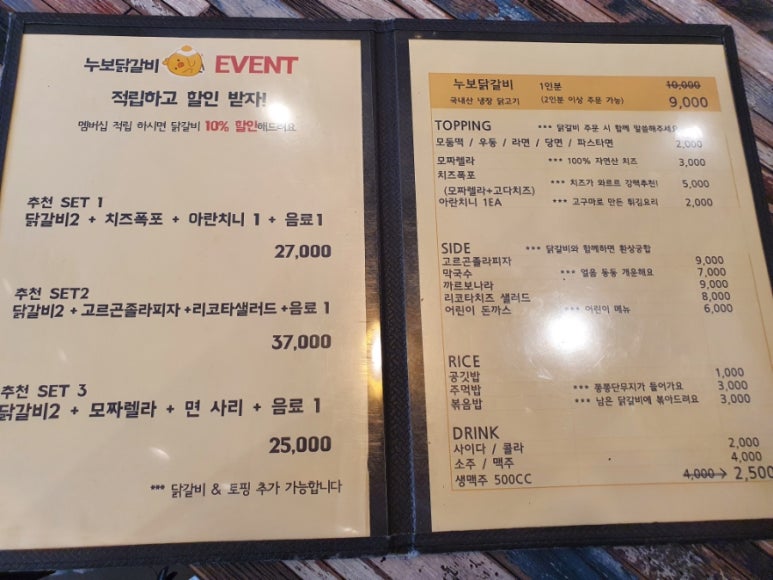 누보닭갈비 EVENT
적립하고 할인 받자!
멤버십 적립 하시면 닭갈비 10% 할인해드려요
추천 SET 1
닭갈비2 + 치즈폭포 + 아란치니 1 + 음료1
27,000
추천 SET2
닭갈비2 + 고르곤졸라피자 +리코타샐러드 +음료 1
37,000
추천 SET 3
닭갈비2 + 모짜렐라 + 면 사리 + 음료 1
25,000
*** 닭갈비 & 토핑 추가 가능합니다
누보닭갈비 1인분 10,000
국내산 냉장 닭고기 (2인분 이상 주문 가능) 9,000
TOPPING *** 닭갈비 주문 시 함께 말씀해주세요
모둠떡 / 우동 / 라면 / 당면 / 파스타면 2,000
모짜렐라 *** 100% 자연산 치즈 3,000
치즈폭포
(모짜렐라+고다치즈) *** 치즈가 와르르 강력추천! 5,000
아란치니 1EA *** 고구마로 만든 튀김요리 2,000
SIDE *** 닭갈비와 함께하면 환상궁합
고르곤졸라피자 9,000
막국수 *** 얼음 동동 개운해요 7,000
까르보나라 9,000
리코타치즈 샐러드 8,000
어린이 돈까스 *** 어린이 메뉴 6,000
RICE
공깃밥 1,000
주먹밥 *** 쫑쫑단무지가 들어가요 3,000
볶음밥 *** 남은 닭갈비에 볶아드려요 3,000
DRINK
사이다 / 콜라 2,000
소주 / 맥주 4,000
생맥주 500CC 4,000→ 2,500